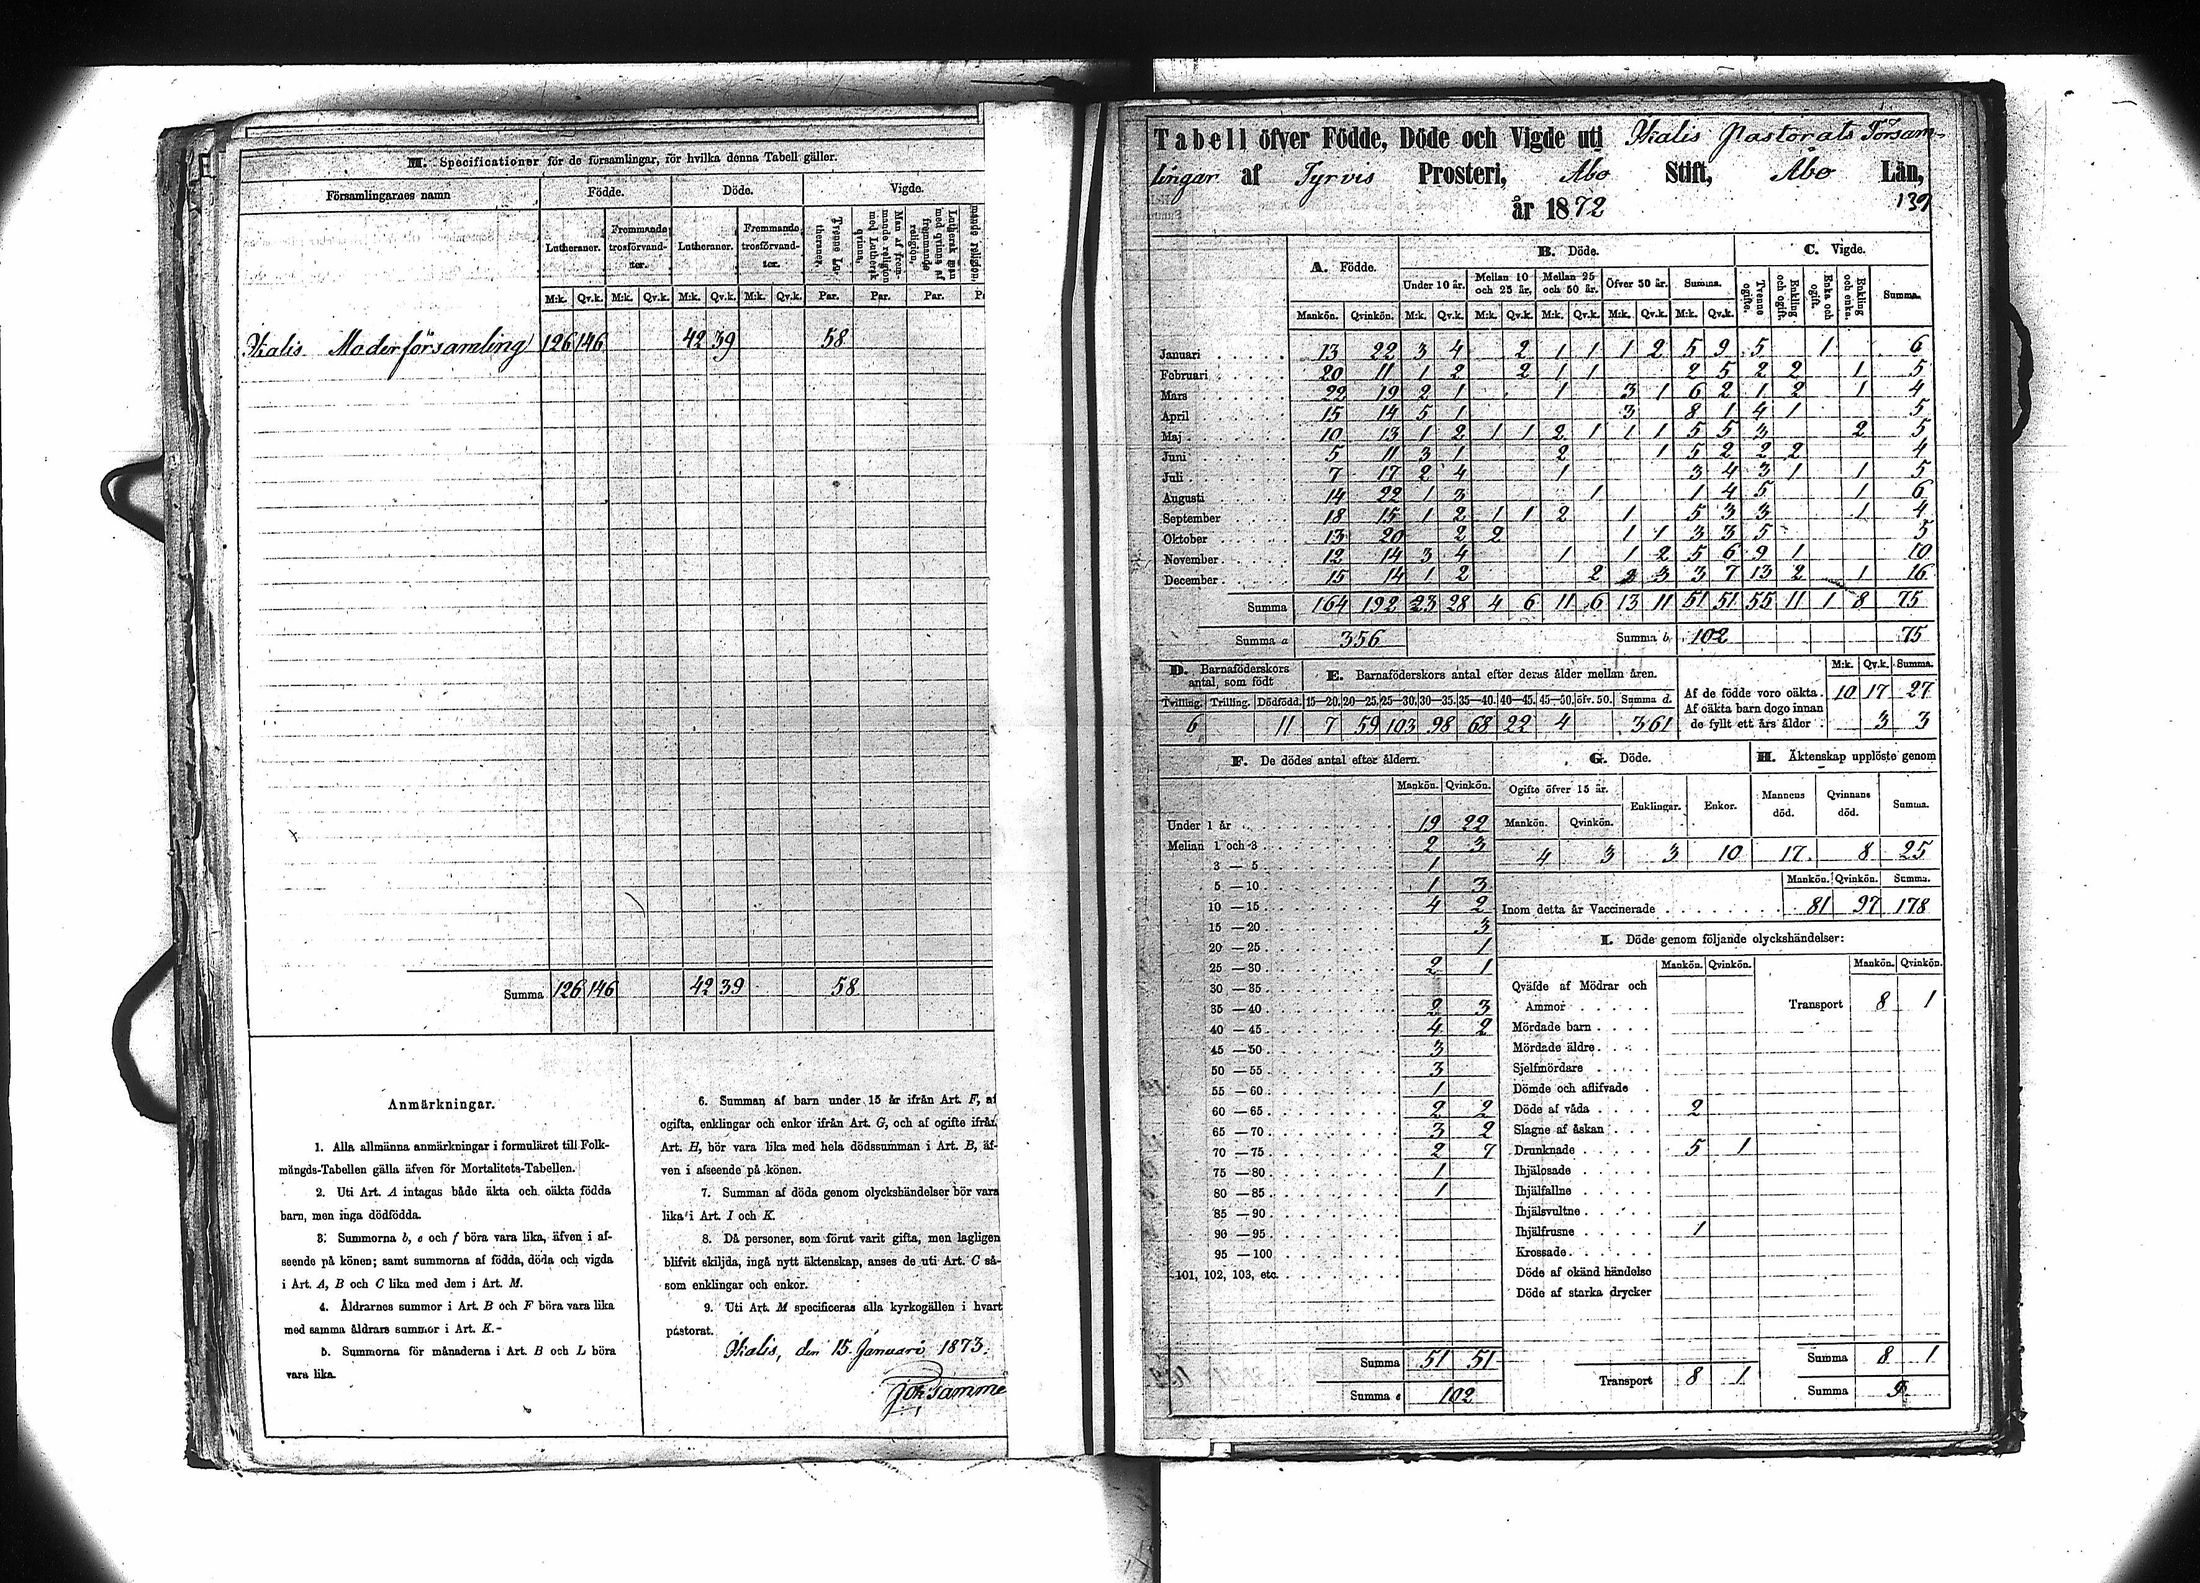 M. Specificationer för de församlingar, för hvilka denna Tabell gäller.
Församlingarnes namn Födde. Döde. Vigde.
Lutheraner. Fremmande trosförvandter. Lutheraner. Fremmande trosförvandter. Tvenne Lutheraner. Man af fremmande religion med Luthersk qvinna. Luthersk man med qvinna af fremmande religion.
M:k. Qv.k. M:k. Qv.k. M:k. Qv.k. M:k. Qv.k. Par. Par. Par.
Ikalis Moderförsamling 126 146 42 39 58
Summa 126 146 42 39 58
Anmärkningar.
1. Alla allmänna anmärkningar i formuläret till Folk-
mängds-Tabellen gälla äfven för Mortalitets-Tabellen.
2. Uti Art. A intagas både äkta och oäkta födda
barn, men inga dödfödda.
3. Summorna b, e och f böra vara lika, äfven i af-
seende på könen; samt summorna af födda, döda och vigda
i Art. A, B och C lika med dem i Art. M.
4. Åldrarnes summor i Art. B och F böra vara lika
med samma åldrars summor i Art. K.
5. Summorna för månaderna i Art. B och L böra
vara lika.
6. Summan af barn under 15 år ifrån Art. F, af
ogifta, enklingar och enkor ifrån Art. G, och af ogifte ifrån
Art. H, bör vara lika med hela dödssumman i Art. B, äf-
ven i afseende på könen.
7. Summan af döda genom olyckshändelser bör vara
lika i Art. I och K.
8. Då personer, som förut varit gifta, men lagligen
blifvit skiljda, ingå nytt äktenskap, anses de uti Art. C så-
som enklingar och enkor.
9. Uti Art. M specificeras alla kyrkogällen i hvart
pastorat.
Ikalis, den 15. Januari 1873.
Tabell öfver Födde, Döde och Vigde uti Ikalis Pastorats Försam-
lingar af Tyrvis Prosteri, Åbo Stift, Åbo Län,
år 1872 139
A. Födde. B. Döde. C. Vigde.
Under 10 år. Mellan 10 och 25 år. Mellan 25 och 50 år. Öfver 50 år. Summa. Tvenne ogifte. Enkling och ogift. Enka och ogift. Enkling och enka. Summa.
Mankön. Qvinkön. M:k. Qv.k. M:k. Qv.k. M:k. Qv.k. M:k. Qv.k. M:k. Qv.k.
Januari 13 22 3 4 2 1 1 1 2 5 9 5 1 6
Februari 20 11 1 2 2 1 1 2 5 2 2 1 5
Mars 22 19 2 1 1 3 1 6 2 1 2 1 4
April 15 14 5 1 3 8 1 4 1 5
Maj 10 13 1 2 1 1 2 1 1 1 5 5 3 2 5
Juni 5 11 3 1 2 1 5 2 2 2 4
Juli 7 17 2 4 1 3 4 3 1 1 5
Augusti 14 22 1 3 1 1 4 5 1 6
September 18 15 1 2 1 1 2 1 5 3 3 1 4
Oktober 13 20 2 2 1 1 3 3 5 5
November 12 14 3 4 1 1 2 5 6 9 1 10
December 15 14 1 2 2 2 3 3 7 13 2 1 16
Summa 164 192 23 28 4 6 11 6 13 11 51 51 55 11 1 8 75
Summa a 356 Summa b 102 75
D. Barnaföderskors antal, som födt E. Barnaföderskors antal efter deras ålder mellan åren. M:k. Qv.k. Summa.
Tvilling. Trilling. Dödfödd. 15—20. 20—25. 25—30. 30—35. 35—40. 40—45. 45—50. öfv. 50. Summa d.
6 11 7 59 103 98 68 22 4 361
Af de födde voro oäkta. 10 17 27
Af oäkta barn dogo innan
de fyllt ett års ålder 3 3
F. De dödes antal efter åldern.
Mankön. Qvinkön.
Under 1 år 19 22
Mellan 1 och 3 2 3
3 — 5 1
5 — 10 1 3
10 — 15 4 2
15 — 20 3
20 — 25 1
25 — 30 2 1
30 — 35
35 — 40 2 3
40 — 45 4 2
45 — 50 3
50 — 55 3
55 — 60 1
60 — 65 2 2
65 — 70 3 2
70 — 75 2 7
75 — 80 1
80 — 85 1
85 — 90
90 — 95
95 — 100
101, 102, 103, etc.
Summa 51 51
Summa e 102
G. Döde. H. Äktenskap upplöste genom
Ogifte öfver 15 år. Enklingar. Enkor. Mannens död. Qvinnans död. Summa.
Mankön. Qvinkön.
4 3 3 10 17 8 25
Mankön. Qvinkön. Summa.
Inom detta år Vaccinerade 81 97 178
I. Döde genom följande olyckshändelser:
Mankön. Qvinkön. Mankön. Qvinkön.
Qväfde af Mödrar och
Ammor Transport 8 1
Mördade barn
Mördade äldre
Sjelfmördare
Dömde och aflifvade
Döde af våda 2
Slagne af åskan
Drunknade 5 1
Ihjälosade
Ihjälfallne
Ihjälsvultne
Ihjälfrusne 1
Krossade
Döde af okänd händelse
Döde af starka drycker
Transport 8 1 Summa 8 1
Summa 9